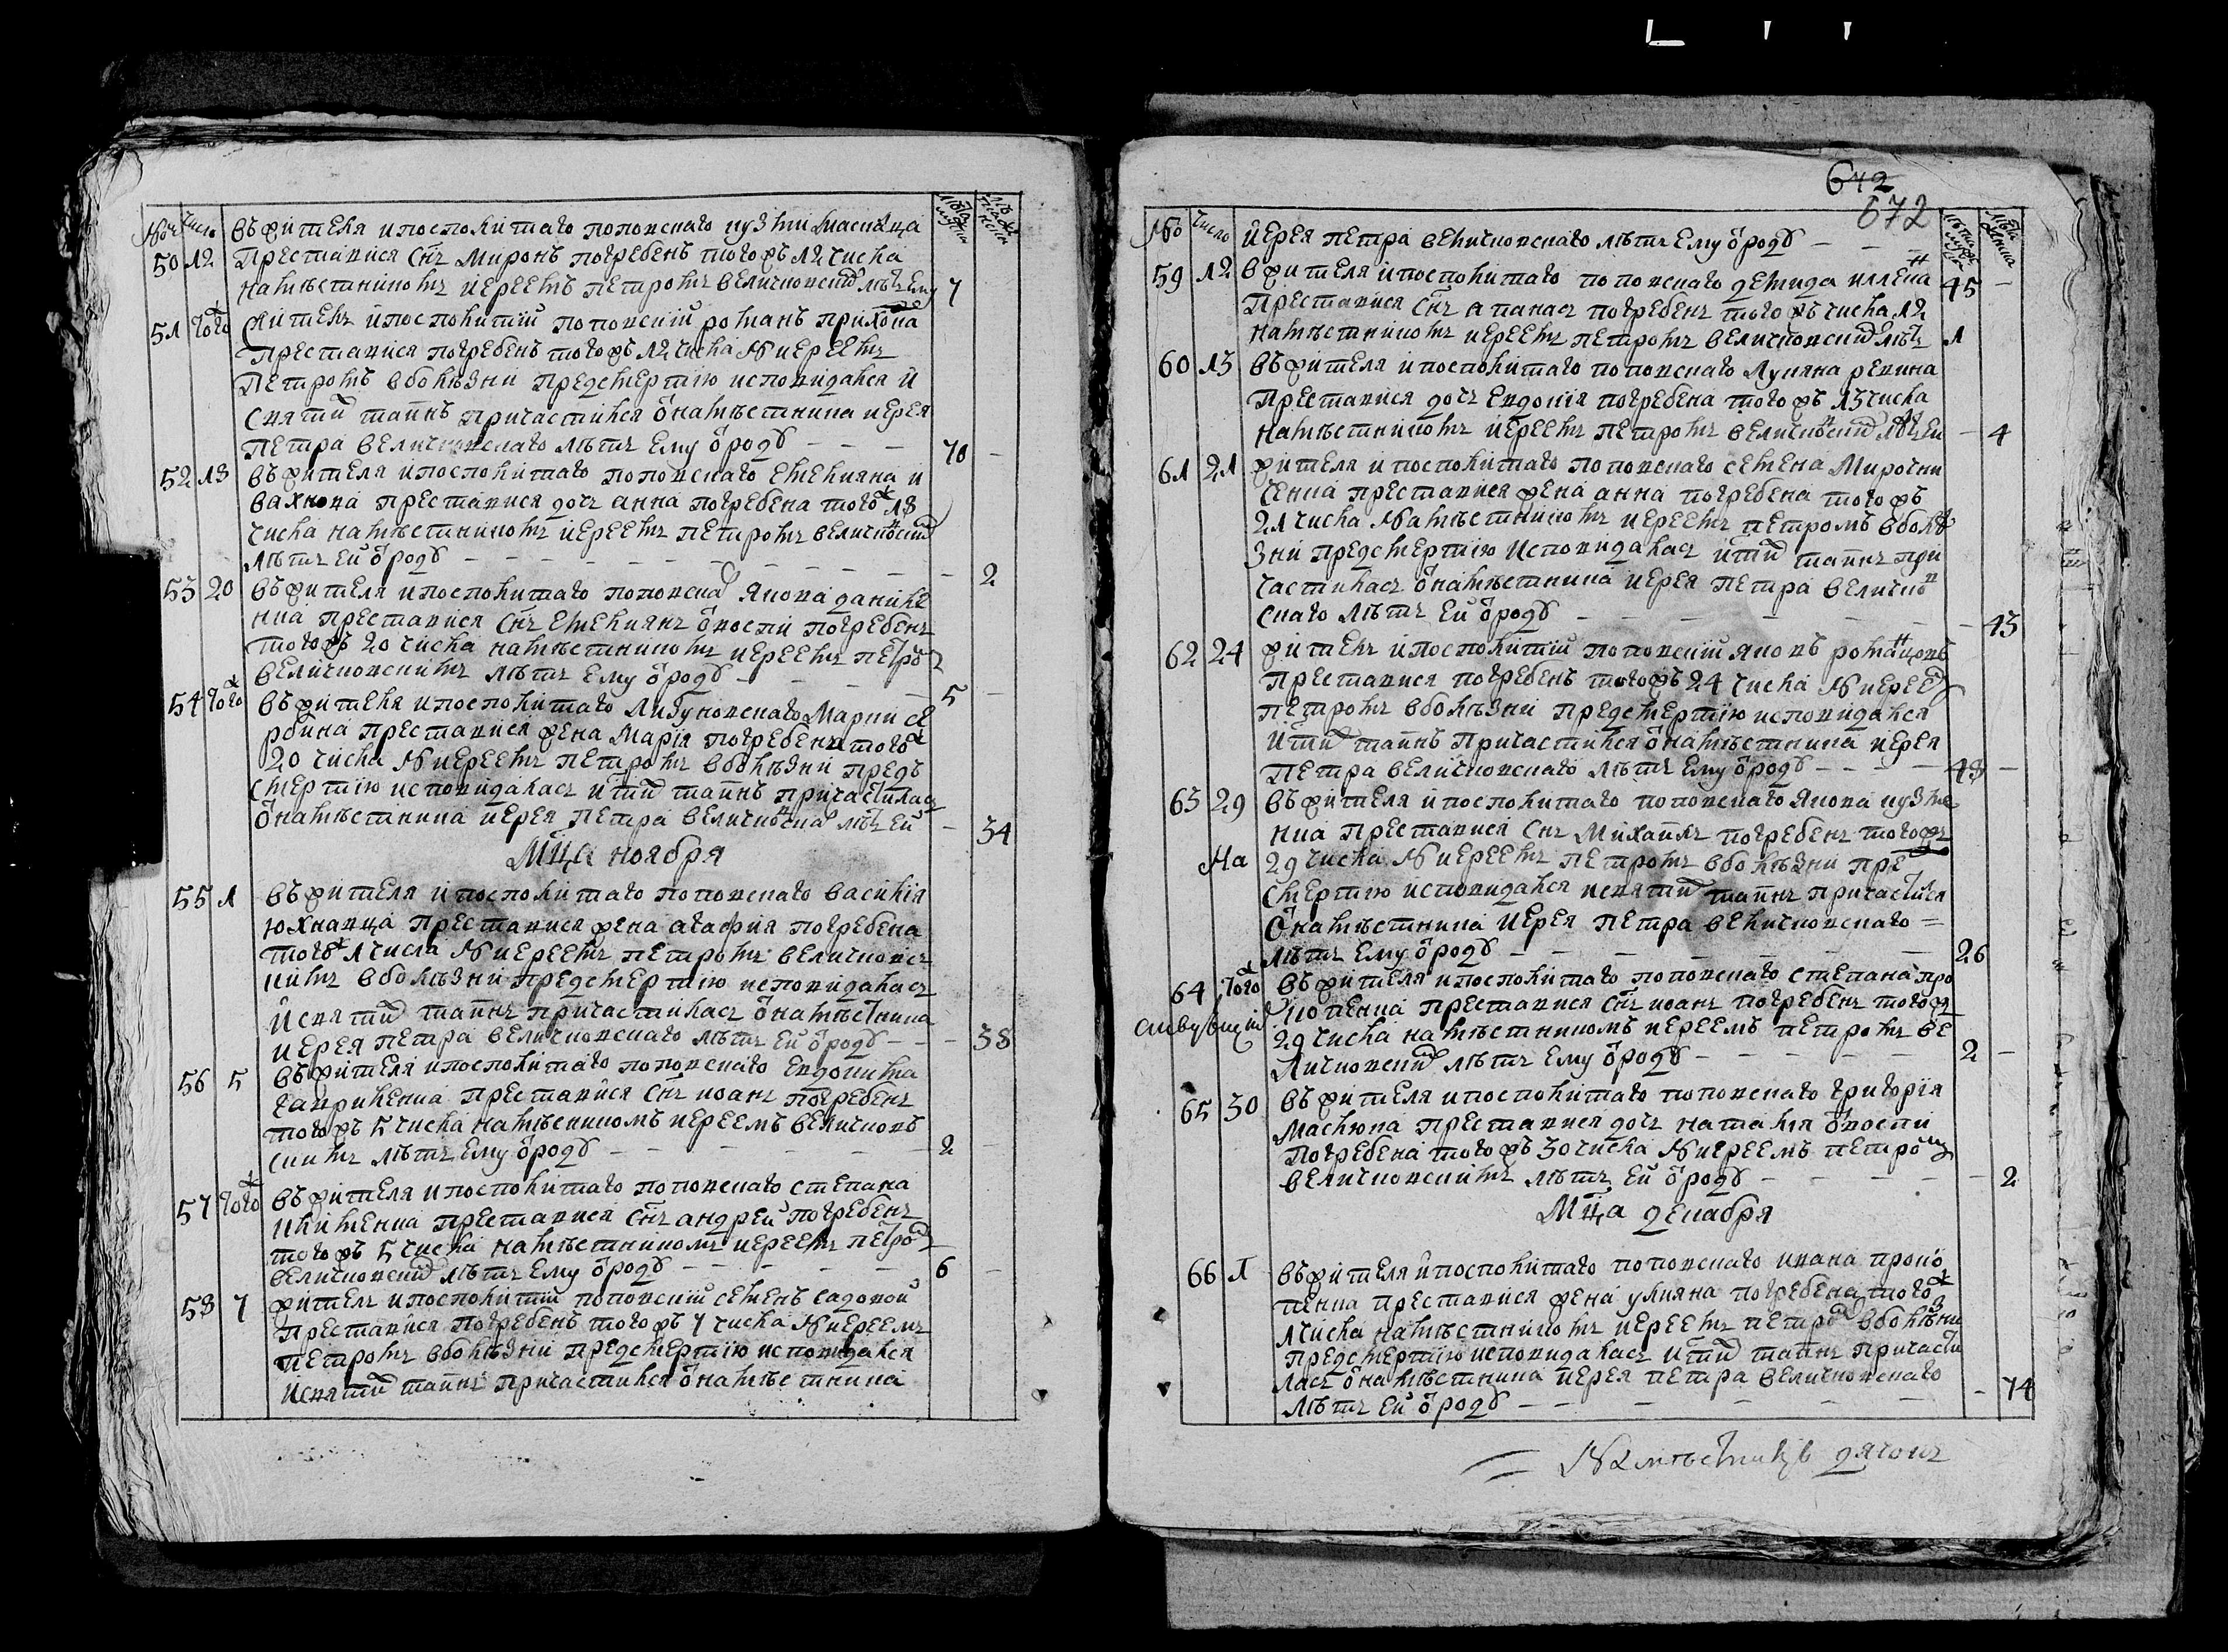 въ жителя и посполитаго поповскаго кузми
50 12 Преставися снъ миронъ погребенъ тогожъ 12 числа
намѣстникомъ иереемъ петромъ величковски лѣтъ Ему 7
51 того Житель и посполитий поповский романъ
преставися погребенъ тогожъ 12 числа N иереемъ
Петромъ в болѣзни предсмертию исповидался и
святи таинъ причастился ѿ намѣстника иерея
петра величковскаго лѣтъ Ему ѿ роду 70
52 18 въ жителя и посполитаго поповскаго емелияна и
вахнова преставися дочъ анна погребена того 18
числа намѣстникомъ иереемъ петромъ величковски
лѣтъ Ей ѿ роду 2
53 20 въ жителя и посполитаго поповска Якова даниле
нка преставися снъ емелиянъ ѿ воспи погребенъ
тогожъ 20 числа намѣстникомъ иереемъ петро
величковскимъ лѣтъ Ему ѿ роду 5
54 того въ жителя и посполитаго марки се
рбина преставися жена мария погребенъ того
20 числа N иереемъ петромъ в болѣзни предъ
смертию исповидалась и ти таинъ причастилась
ѿ намѣстника иерея петра величковска лѣ Ей 34
Мца ноября
55 1 въ жителя и посполитаго поповскаго василия
юхнавца преставися жена агафия погребена
того 1 числа N иереемъ петромъ величковс
кимъ в болѣзни предсмертию исповидалась
и святи таинъ причастилась ѿ намѣстника
иерея петра величковскаго лѣтъ Ей ѿ роду 38
56 5 въ жителя и посполитаго поповскаго Евдокима
гавриленка преставися снъ иоанъ погребенъ
тогожъ 5 числа намѣсникомъ иереемъ величковъ
скимъ лѣтъ Ему ѿ роду 2
57 того въ жителя и посполитаго поповскаго степана
клименка преставися снъ андрей погребенъ
тогожъ 5 числа намѣстникомъ иереемъ петро
величковски лѣтъ Ему ѿ роду 6
58 7 житель и посполитий поповский семенъ садовой
преставися погребенъ тогожъ 7 числа N иереемъ
петромъ в болѣзни предсмертию исповидался
и святи таинъ причастился ѿ намѣстника
642
672
No число иерея петра величковскаго лѣтъ Ему ѿ роду 45
59 12 в жителя и посполитаго поповскаго демида
преставися снъ апанасъ погребенъ тогожъ числа 12
намѣстникомъ иереемъ петромъ величковски лѣтъ 1
60 13 въ жителя и посполитаго поповскаго Лукяна ревина
преставися дочъ Евдокия погребена тогожъ 13 числа
намѣстникомъ иереемъ петромъ величковски лѣ Ей 4
61 21 жителя и посполитаго поповскаго семена Мирочни
ченка преставися жена анна погребена тогожъ
21 числа намѣстникомъ иереемъ петромъ в болѣ
зни предсмертию исповидалась и ти таинъ при
частилась ѿ намѣстника иерея петра величко
скаго лѣтъ Ей ѿ роду 43
62 24 житель и посполитий поповский яковъ
преставися погребенъ тогожъ 24 числа N иерее
петромъ в болѣзни предсмертию исповидался
и ти таинъ причастился ѿ намѣстника иерея
петра величковскаго лѣтъ Ему ѿ роду 48
63 29 въ жителя и посполитаго поповскаго Якова кузме
нка преставися снъ михаилъ погребенъ тогожъ
На 29 числа N иереемъ петромъ в болѣзни пре
смертию исповидался и святи таинъ причастися
ѿ намѣстника иерея петра величковскаго
лѣтъ Ему ѿ роду 26
64 того въ жителя и посполитаго поповскаго степана про
копенка преставися снъ иоанъ погребенъ тогожъ
29 числа намѣстникомъ иереемъ петромъ ве
личковски лѣтъ Ему ѿ роду 2
65 30 въ жителя и посполитаго поповскаго григория
маслюка преставися дочъ наталия ѿ воспи
погребена тогожъ 30 числа N иереемъ петро
величковскимъ лѣтъ Ей ѿ роду 2
Мца декабря
66 1 въ жителя и посполитаго поповскаго ивана проко
пенка преставися жена улияна погребена того
1 числа намѣстникомъ иереемъ петро в болѣзни
предсмертию исповидалась и ти таинъ причасти
лась ѿ намѣстника иерея петра величковскаго
лѣтъ Ей ѿ роду 74